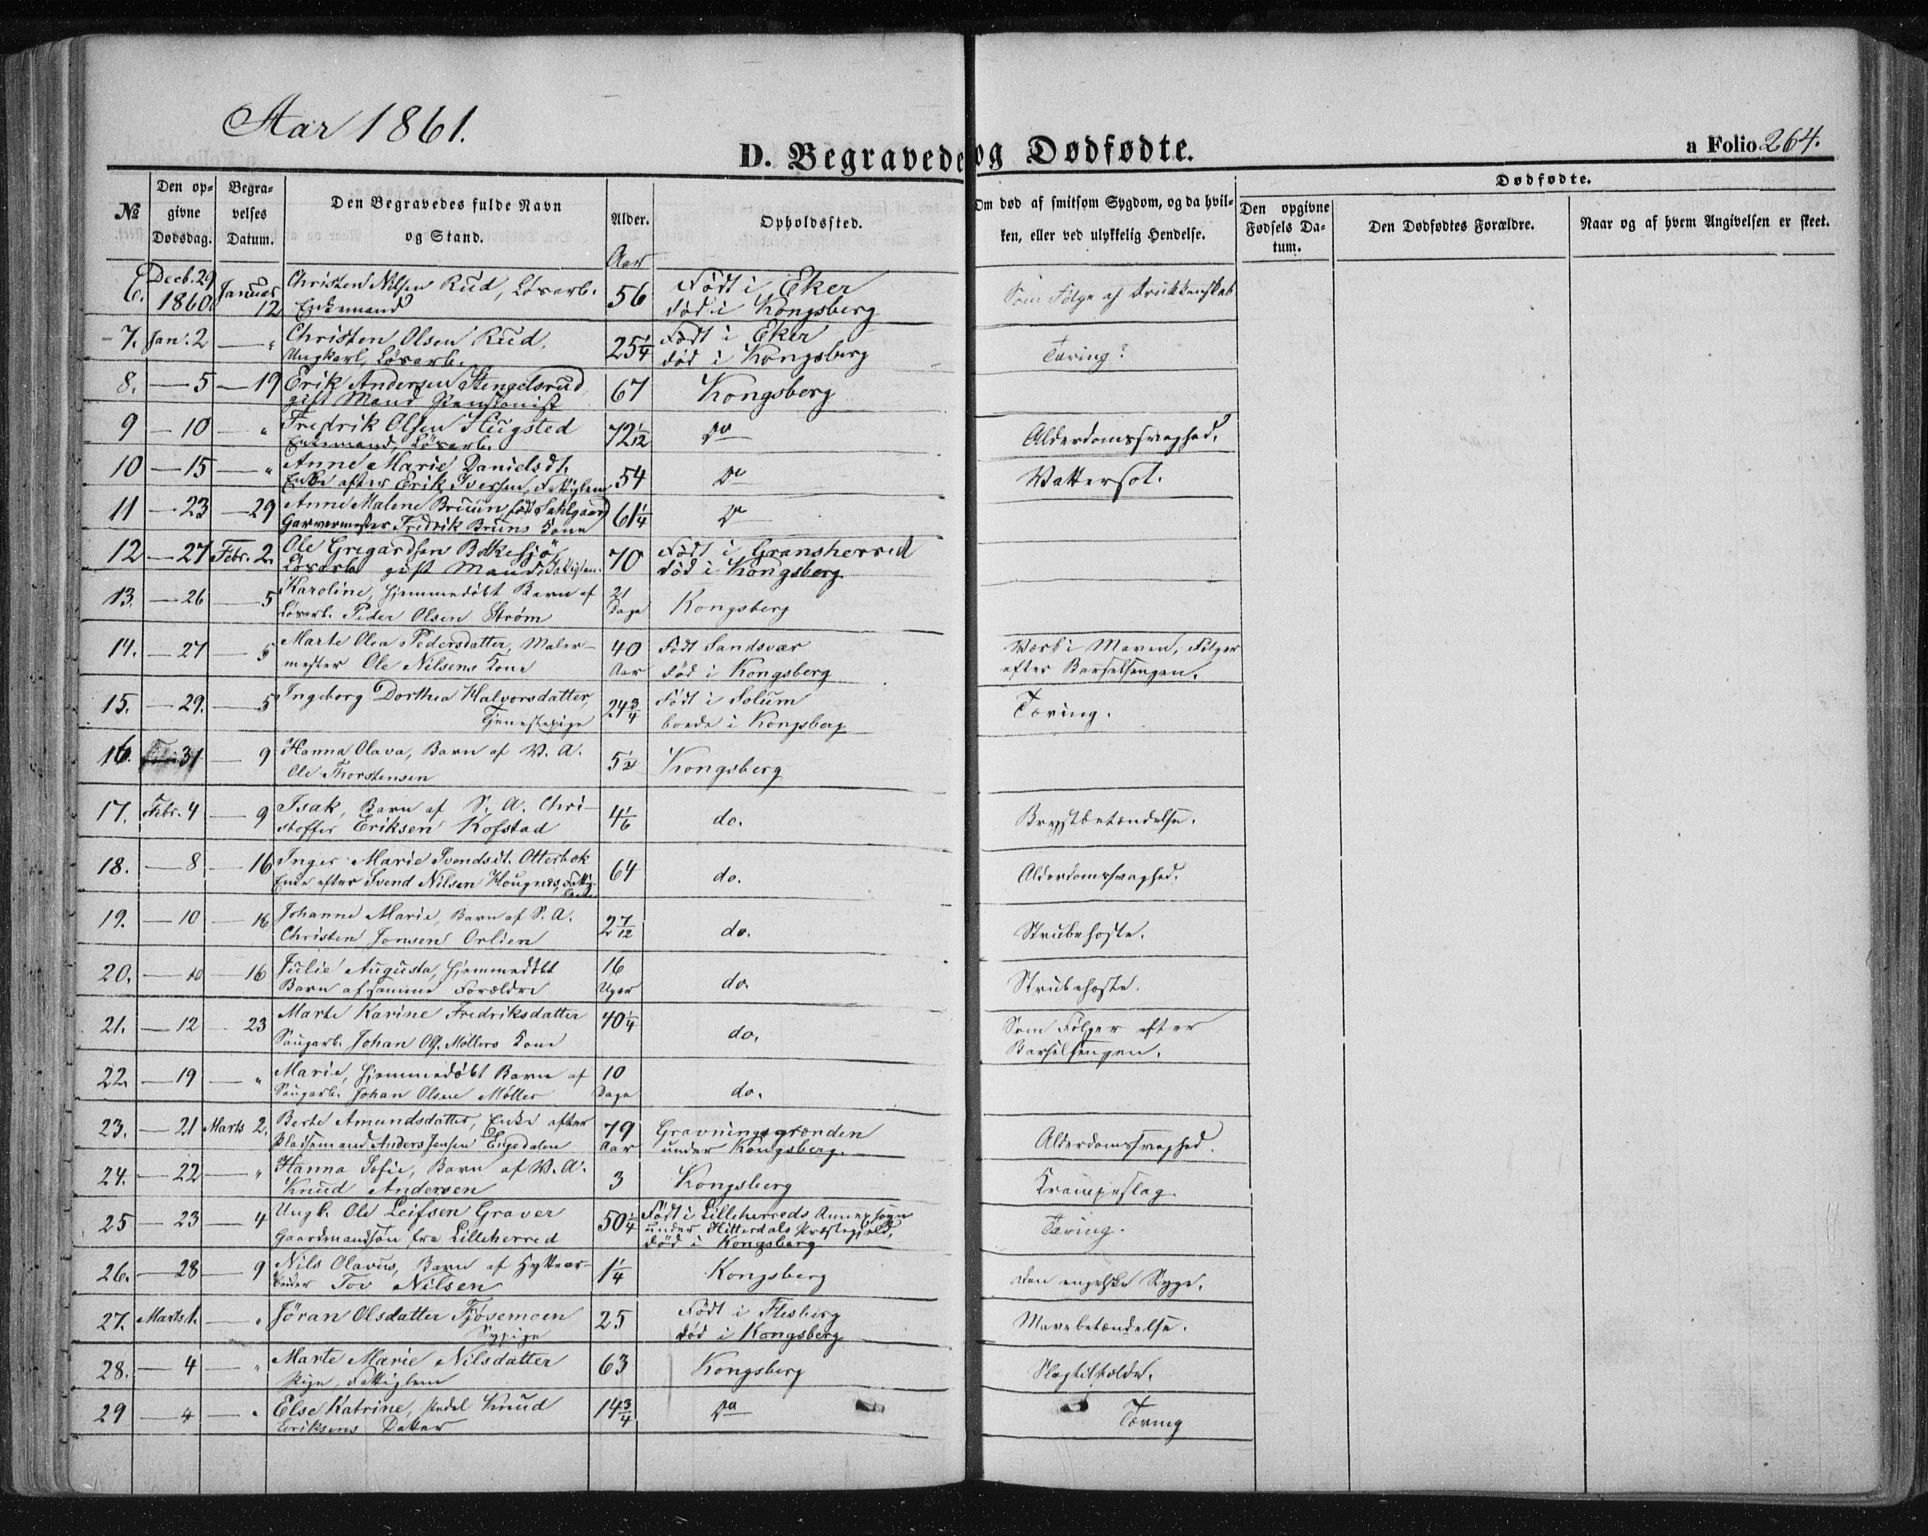 Aar 1861.
D. Begravede og Dødfødte.
a Folio 264.
№
Den opgivne Dødsdag.
Begravelses Datum.
Den Begravedes fulde Navn og Stand.
Alder.
Aar
Opholdssted.
Om død af smitsom Sygdom, og da hvilken, eller ved ulykkelig Hendelse.
Dødfødte.
Den opgivne Fødsels Datum.
Den Dødfødtes Forældre.
Naar og af hvem Angivelsen er skeet.
6. Decb. 29 1860 Januar 12 Christen Nilsen Rud, Løsarb. 56 Født i Eker Som Følge af Drukkenskab
Enkemand død i Kongsberg
7. Jan. 2 — " Christen Olsen Rud. 25 1/4 Født i Eker Tæring?
Ungkarl, Løsarb. død i Kongsberg
8. — 5 — 19 Erik Andersen Stengelsrud 67 Kongsberg
gift Mand Pensionist
9 — 10 — " Fredrik Olsen Hugsted 72 1/12 Do Alderdomssvaghed.
Enkemand, Løsarb.
10 — 15 — " Anne Marie Danielsdt. 54 Do Vattersot.
Enke efter Erik Iversen, Fattiglem
11 — 23 — 29 Anne Malene Bruun, født Dahlgaard 61 1/4 Do
Garvermester Fredrik Bruns Kone
12 — 27 Febr. 2. Ole Gregardsen Bolkesjø 70 Født i Gransherred
Løsarb gift Mand, Fattiglem. død i Kongsberg
13. — 26 — 5 Karoline, hjemmedøbt Barn af 21 Dage Kongsberg
Løsarb. Peder Olsen Strøm
14. — 27 — 5 Marte Olea Pedersdatter, Maler- 40 Aar Født Sandsvær Værk i Maven, Følger
mester Ole Nilsens Kone død i Kongsberg efter Barselsengen.
15. — 29. — 5 Ingeborg Dorthea Halvorsdatter, 24 3/4 Født i Solum Tæring.
Tjenestepige boede i Kongsberg
16. 31 — 9 Hanna Olava, Barn af V. A. 5 1/2 Kongsberg
Ole Thorstensen
17. Febr. 4 — 9 Isak, Barn af S. A. Chri- 4 1/6 do. Brystbetændelse.
stoffer Eriksen Kofstad
18. — 8 — 16 Inger Marie Svendsdt. Otterbek 64 do. Alderdomssvaghed.
Enke efter Svend Nilsen Hougnes, Fattig-
19. — 10 — 16 Johanne Marie, Barn af S. A. 2 7/12 do. Strubehoste.
Christen Jonsen Orlien
20. — 10 — 16 Julie Augusta, hjemmedøbt 16 Uger do. Strubehoste.
Barn af samme Forældre
21. — 12 — 23 Marte Karine Fredriksdatter 40 1/4 do. Som Følger efter
Saugarb. Johan Ols. Møllers Kone Barselsengen.
22. — 19 — " Marie, hjemmedøbt Barn af 10 Dage do.
Saugarb. Johan Olsen Møller
23. — 21 Marts 2. Berte Amundsdatter, Enke efter 79 Aar Gravningsgrænden Alderdomssvaghed.
Pladsemand Anders Jensen Engedalen under Kongsberg.
24. — 22 — " Hanna Sofie, Barn af V. A. 3 Kongsberg Krampeslag
Knud Andersen
25 — 23 — 4 Ungk. Ole Leifsen Graver 50 1/4 Født i Lilleherreds Annexsogn Tæring.
Gaardmandsøn fra Lilleherred under Hitterdals Præstegjeld,
død i Kongsberg
26. — 28 — 9 Nils Olavus, Barn af Hyttear- 1 1/4 Kongsberg den engelske Syge.
beider Tov Nilsen
27. Marts 1. — " Jöran Olsdatter Fjøsemoen 25 Født i Flesberg Mavebetændelse.
Sypige død i Kongsberg
28. — 4 — " Marte Marie Nilsdatter 63 Kongsberg Slagtilfælde.
Pige, Fattiglem
29 — 4 — " Else Katrine, Knud 14 3/4 Do Tæring
Eriksens Datter